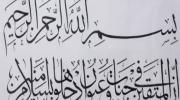 بسم الله الرحمن الرحيم
ان المتقين في جنات وعيون ادخلوها بسلام امنين